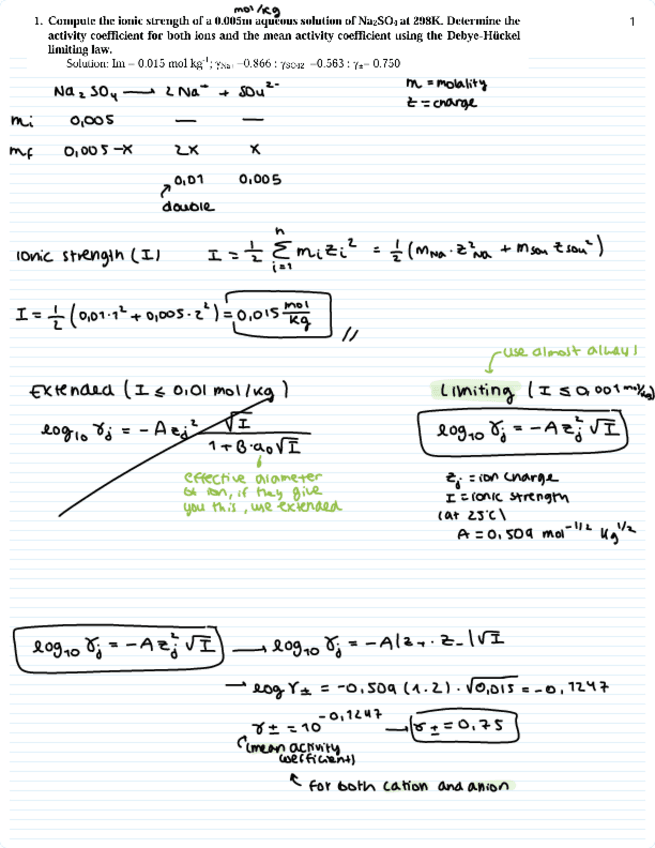 mol/kg
1. Compute the ionic strength of a 0.005m aqueous solution of Na₂SO₄ at 298K. Determine the
1
activity coefficient for both ions and the mean activity coefficient using the Debye-Hückel
limiting law.
Solution: Im = 0.015 mol kg⁻¹; γNa+ =0.866 ; γSO42- =0.563 ; γ± = 0.750
Na₂SO₄ → 2Na⁺ + SO₄²⁻
m = molality
z = charge
mi 0,005 — —
mf 0,005-x 2x x
0,01 0,005
double
Ionic strength (I) I = 1/2 Σ(i=1, n) mᵢzᵢ² = 1/2 (mNa · z²Na + mSO₄ zSO₄²)
I = 1/2 (0,01·1² + 0,005·2²) = 0,015 mol/kg //
use almost always
Extended (I ≤ 0,01 mol/kg)
Limiting (I ≤ 0,001 mol/kg)
log₁₀ γj = -A zj² √I / (1+B·a₀√I)
log₁₀ γj = -A zj² √I
effective diameter
of ion, if they give
you this, use extended
zj = ion charge
I = ionic strength
(at 25°C)
A = 0,509 mol⁻¹/² kg¹/²
log₁₀ γj = -A zj² √I → log₁₀ γj = -A|z₊ · z₋|√I
→ log γ± = -0,509 (1·2) · √0,015 = -0,1247
γ± = 10^-0,1247 → γ± = 0,75
(mean activity
coefficient)
for both cation and anion